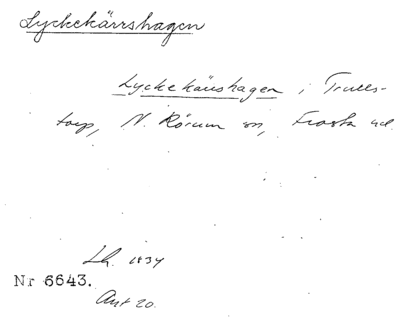 Lyckekärrshagen
Lyckekärrshagen i Trulls-
torp, N. Rörum sn, Frosta hd.
Lh. 1834
Nr 6643.
Ant 20.